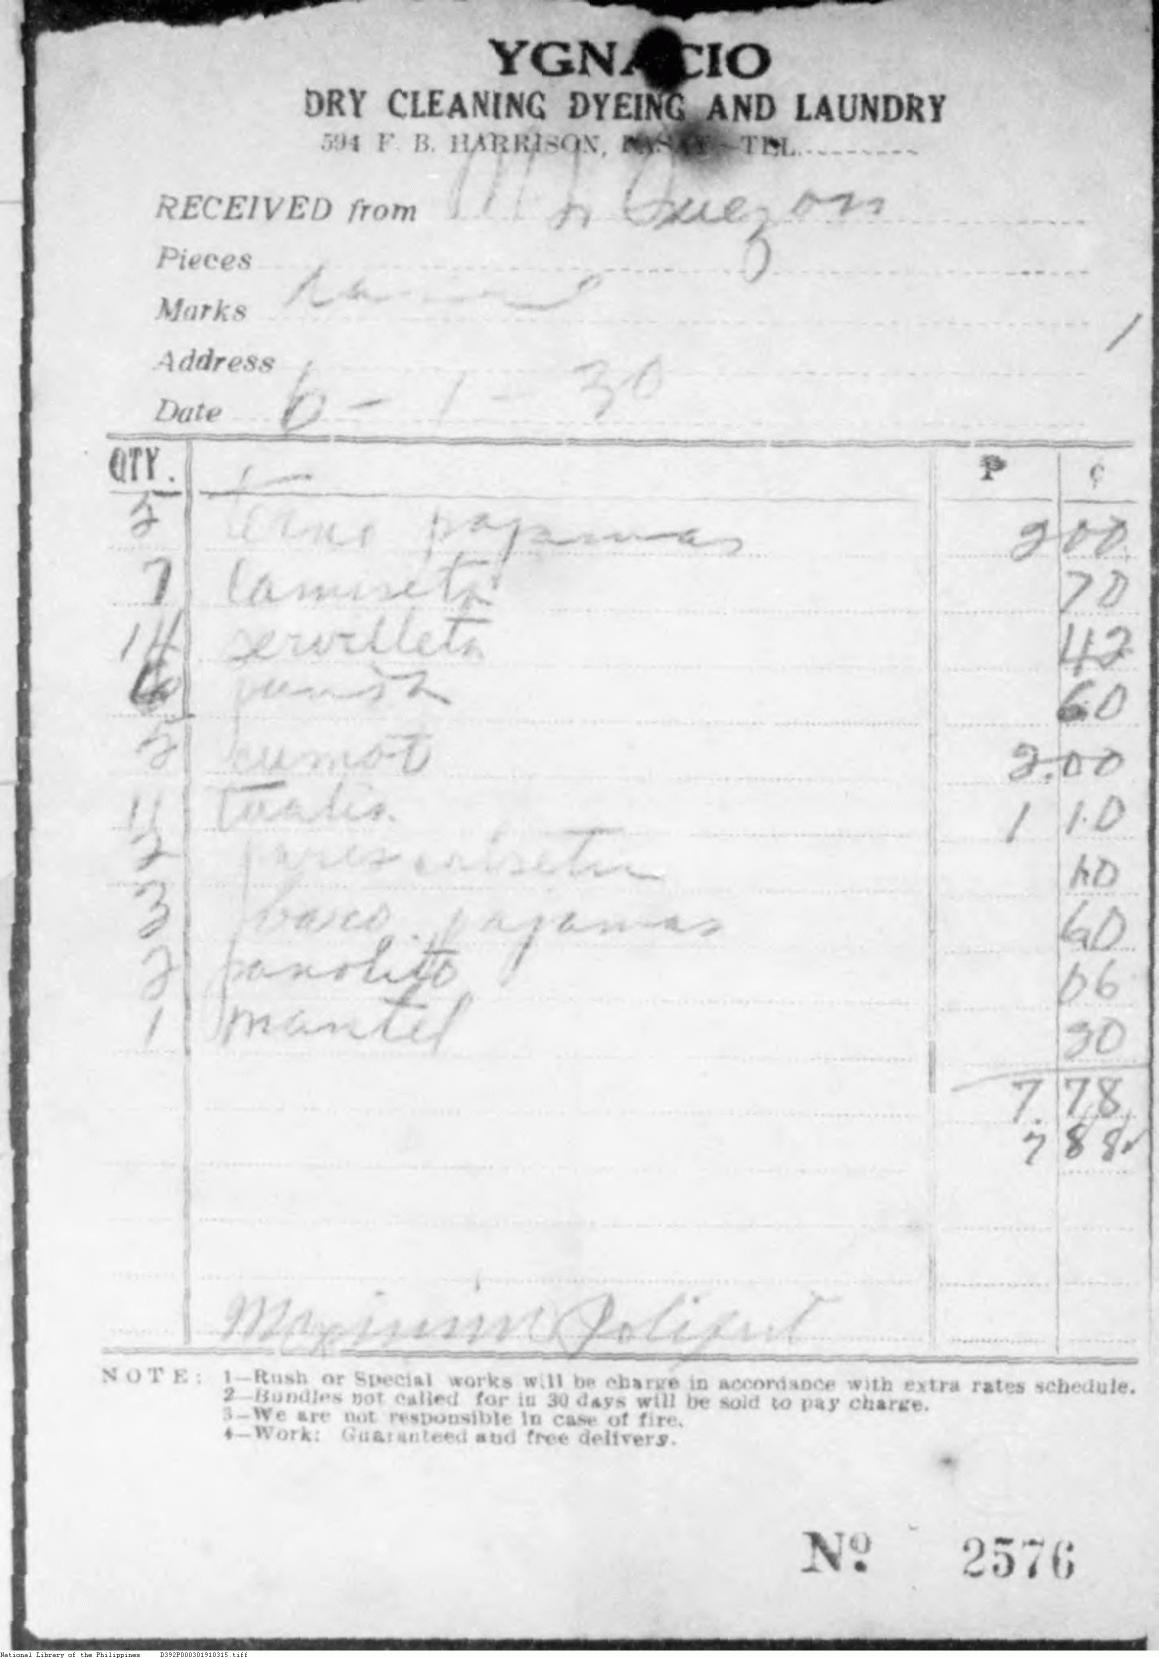 YGNACIO
DRY CLEANING DYEING AND LAUNDRY
594 F. B. HARRISON, PASAY - TEL.
RECEIVED from Mr Quezon
Pieces
Marks
Address
Date 6 - 1 - 30
QTY. P ¢
5 terno pajamas 2 00
7 Camiseta 70
14 servilleta 42
6 60
5 cumot 2.00
11 Tualia 1 10
2 pares calsetin
3 pajamas 60
2 panolito 06
1 mantel 30
7. 78
7 88
NOTE: 1—Rush or Special works will be charge in accordance with extra rates schedule.
2—Bundles not called for in 30 days will be sold to pay charge.
3—We are not responsible in case of fire.
4—Work: Guaranteed and free delivers.
Nº 2576
National Library of the Philippines D392P000301910315.tiff